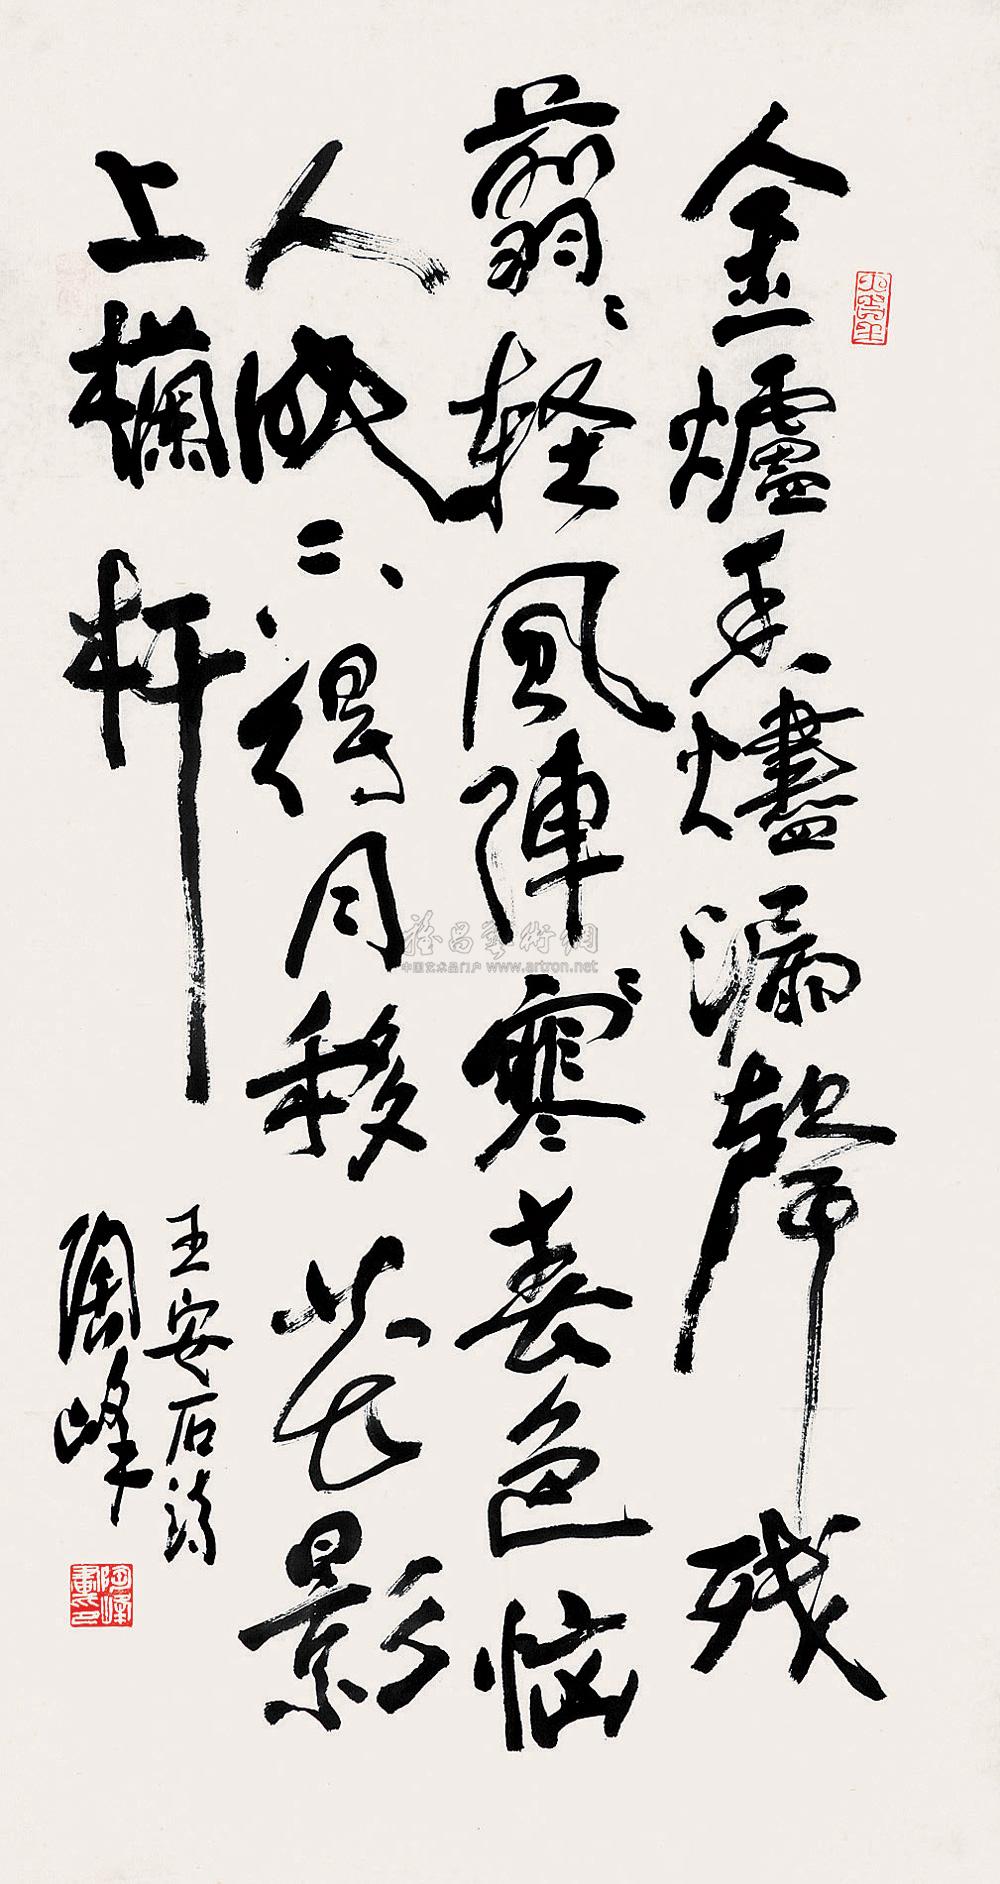 金爐香燼漏聲残
翦〻輕風陣〻寒春色惱
人眠不得月移花影
上欄杆
王安石詩
陶峰
陶峰
雅昌藝術網
中国艺术品门户 www.artron.net